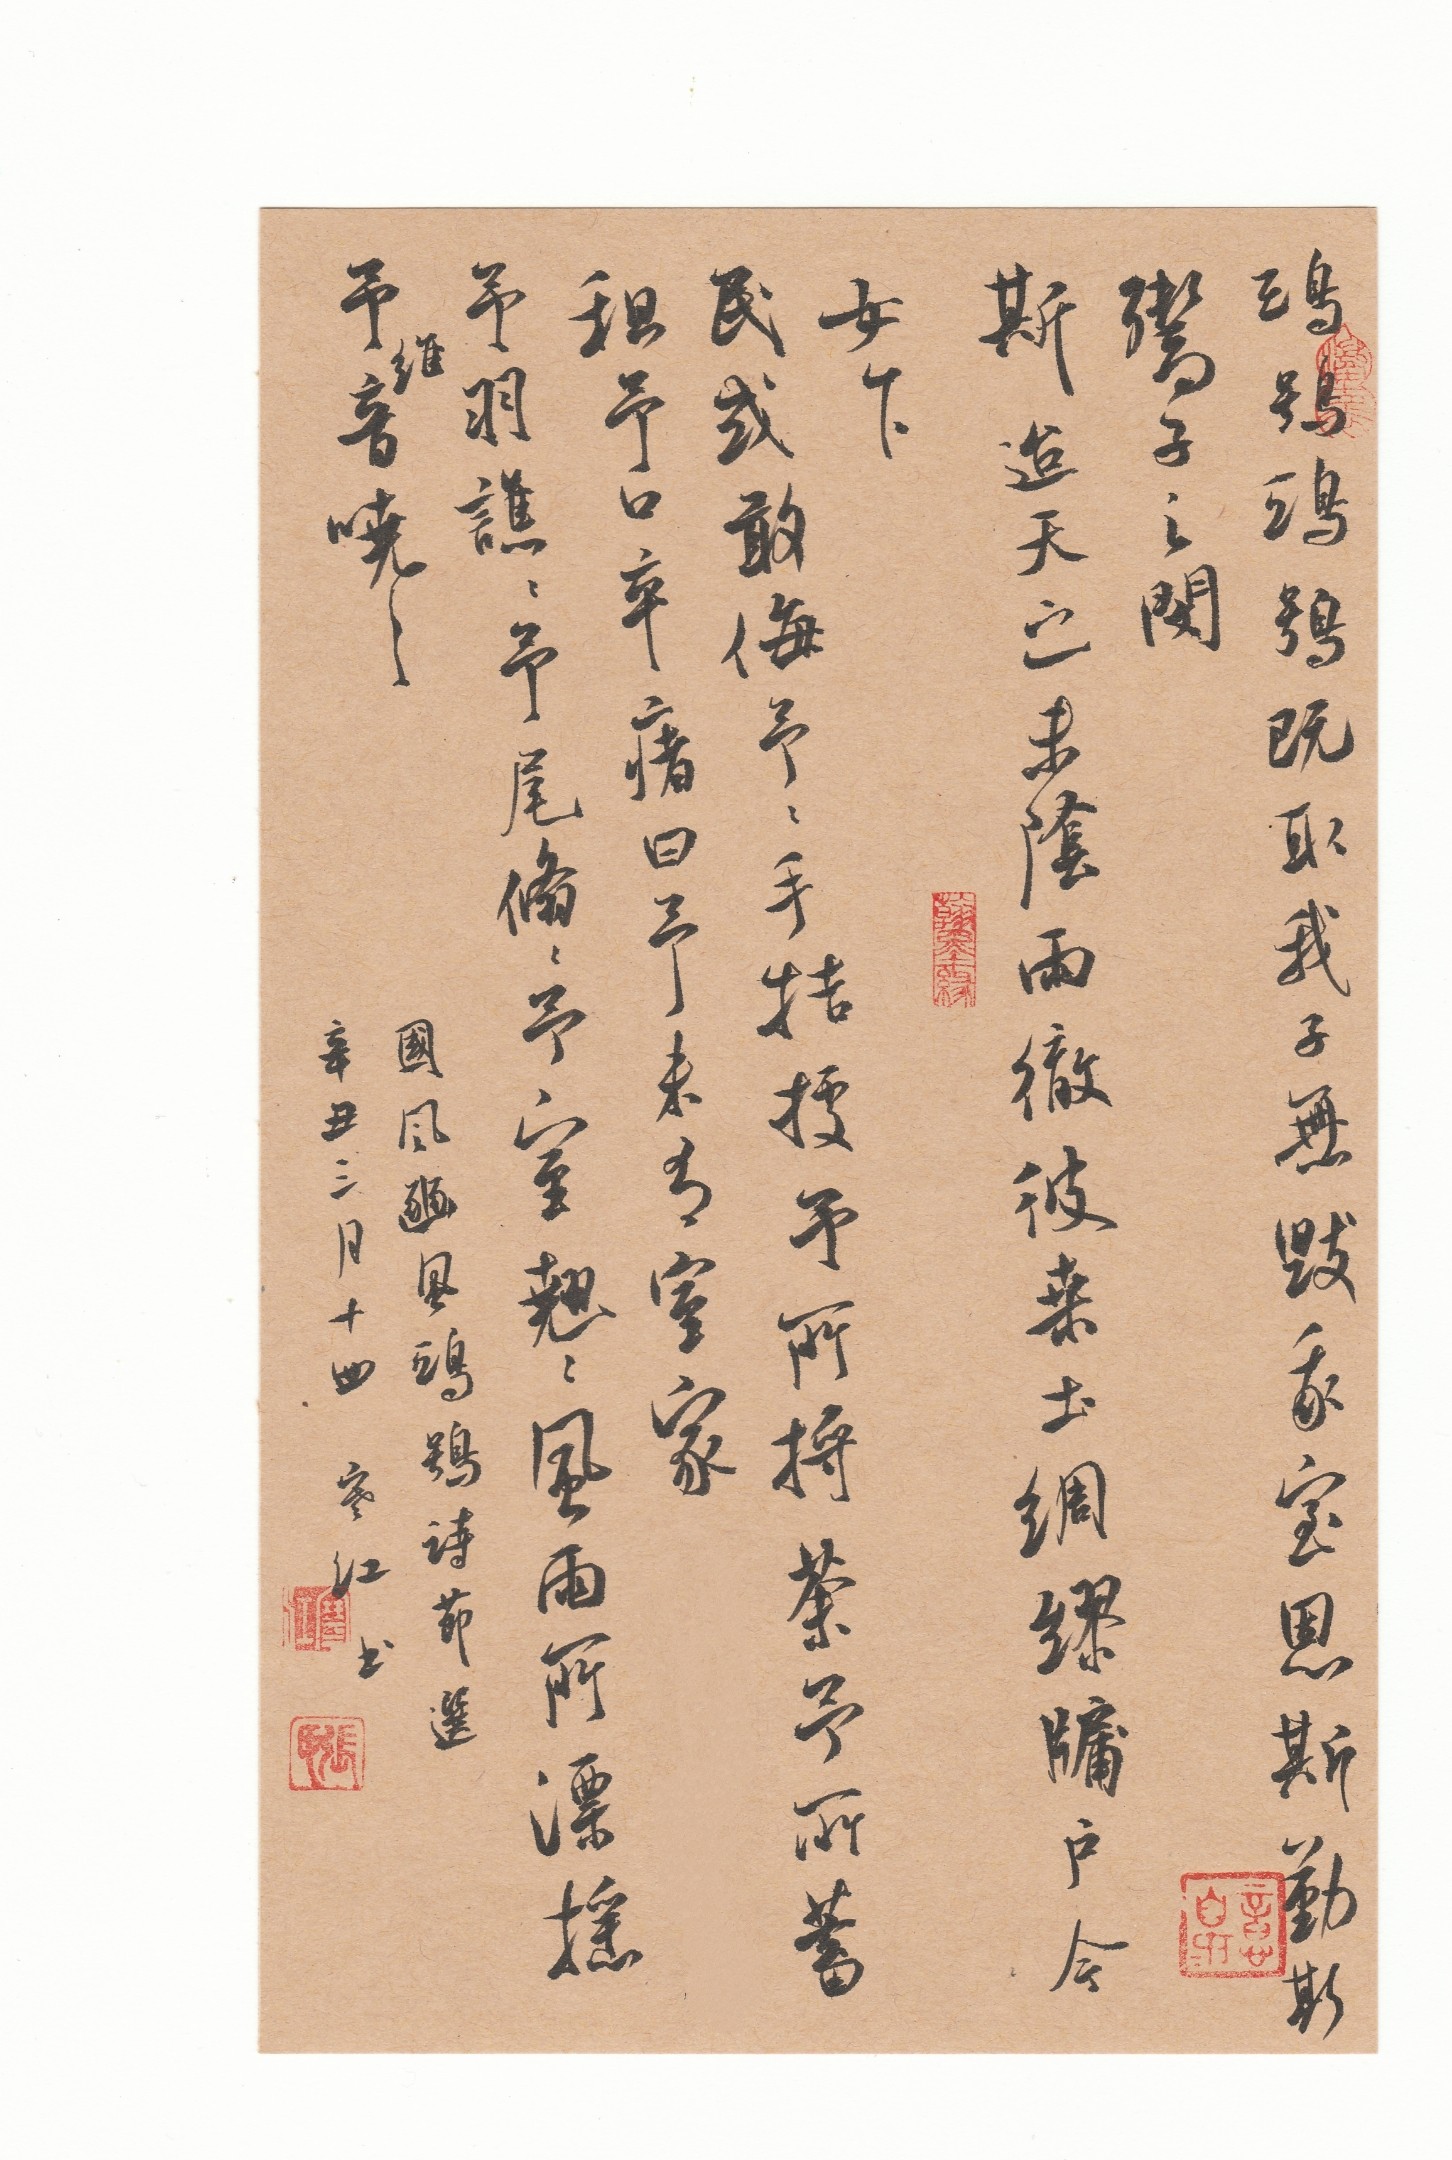 鴟鴞鴟鴞既取我子無毀我室恩斯勤斯
鬻子之閔
斯 迨天之未陰雨徹彼桑土綢繆牖户今
女下
民或敢侮予予手拮据予所捋荼予所蓄
租予口卒瘏曰予未有室家
予羽譙〻予尾翛〻予室翹〻風雨所漂摇
予維音嘵〻
國風豳風鴟鴞詩節選
辛丑三月十四 寒江書